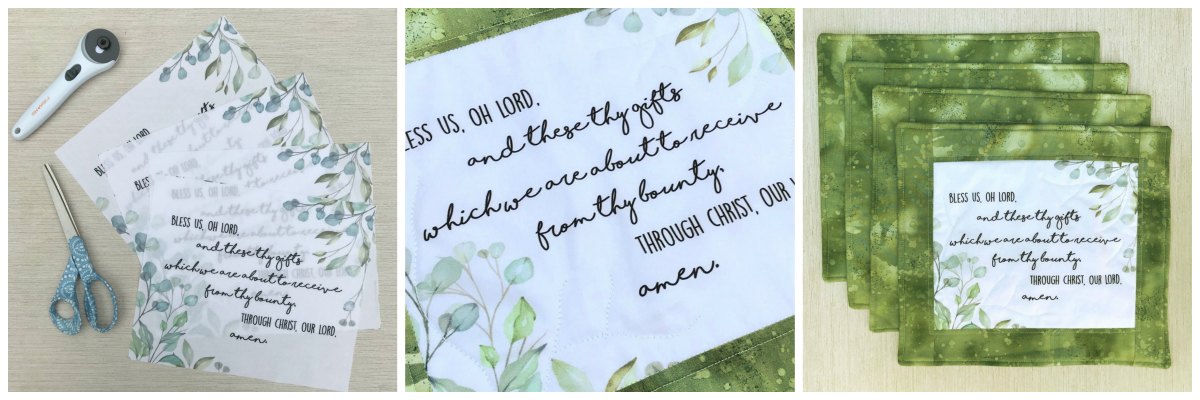 BLESS US, OH LORD,
and these thy gifts
which we are about to receive
from thy bounty,
THROUGH CHRIST, OUR LORD,
amen.
LESS US, OH LORD,
and these thy gifts
which we are about to receive
from thy bounty,
THROUGH CHRIST, OUR
amen.
BLESS US, OH LORD,
and these thy gifts
which we are about to receive
from thy bounty,
THROUGH CHRIST, OUR LORD,
amen.